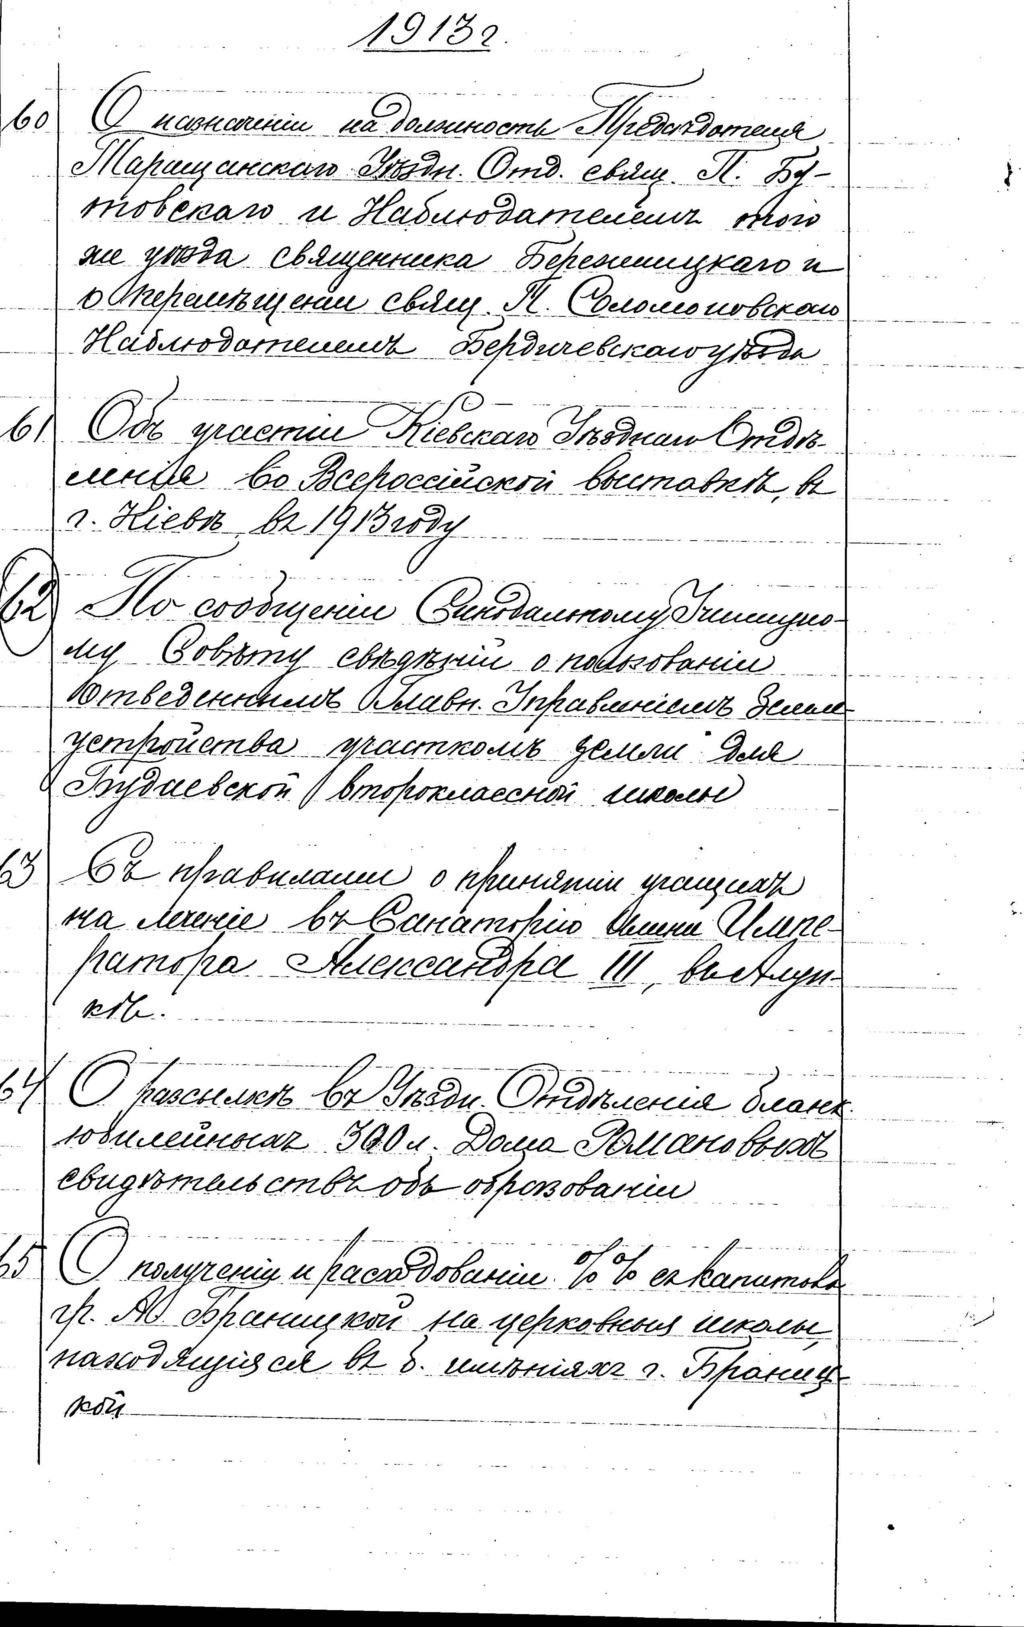 1913 г.
60 О назначеніи на должность Предсѣдателя
Таращанскаго Уѣздн. Отд. свящ. П. Бу-
товскаго и Наблюдателемъ того
же уѣзда священника Бережницкаго и
о перемѣщеніи свящ. П. Соломоновскаго
Наблюдателемъ Бердичевскаго уѣзда
61 Объ участіи Кіевскаго Уѣзднаго Отдѣ-
ленія во Всероссійской выставкѣ, въ
г. Кіевѣ въ 1913 году
62 По сообщеніи Синодальному Училищно-
му Совѣту свѣдѣній о пользованіи
отведеннымъ Главн. Управленіемъ Земле-
устройства участкомъ земли для
Будаевской второклассной школы
63 Съ правилами о принятіи учащихъ
на леченіе въ Санаторію имени Импе-
ратора Александра III, въ Алуп-
кѣ.
64 О разсылкѣ въ Уѣздн. Отдѣленія бланк.
юбилейныхъ 300 л. Дома Романовыхъ
свидѣтельствъ объ образованіи
65 О полученіи и расходованіи %% съ капитала
гр. М. Браницкой на церковныя школы,
находящіяся въ б. имѣніяхъ г. Браниц-
кой